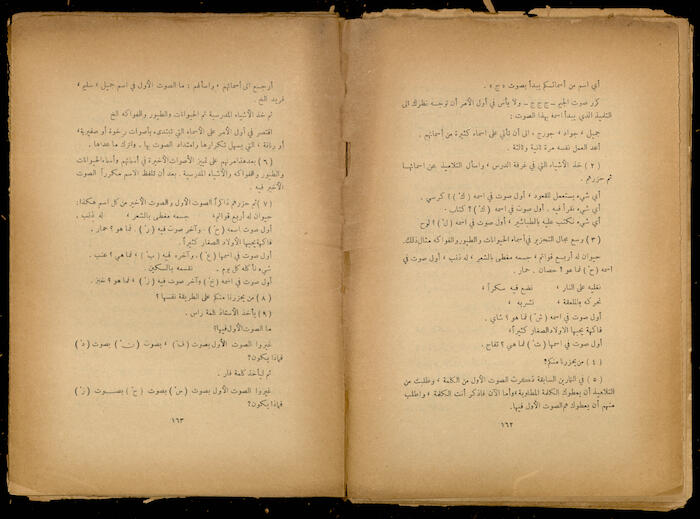 أي اسم من أسمائكم يبدأ بصوت « ج » .
كرر صوت الجيم ــ ج ج ج ــ ولا بأس في أول الأمر أن توجه نظرك الى
التلميذ الذي يبدأ اسمه بهذا الصوت :
جميل ، جواد ، جورج ، الى أن تأتي على اسماء كثيرة من أسمائهم .
أعد العمل نفسه مرة ثانية وثالثة .
( ٢ ) خذ الأشياء التي في غرفة الدرس ، واسأل التلاميذ عن اسمائها
ثم حزرهم .
أي شيء يستعمل للقعود ، أول صوت في اسمه ( كْ ) ؟ كرسي .
أي شيء نقرأ فيه . أول صوت في اسمه ( كْ ) ؟ كتاب .
أي شيء نكتب عليه بالطباشير ، أول صوت في اسمه ( لْ ) ؟ لوح
( ٣ ) وسع مجال التحزير في أسماء الحيوانات والطيور والفواكه مثال ذلك.
حيوان له أربع قوائم ، جسمه مغطى بالشعر ، له ذنب ، أول صوت في
اسمه ( حْ ) فما هو ؟ حصان . حمار .
نغليه على النار ، نضع فيه سكراً ،
نحركه بالملعقة ، نشربه ،
أول صوت في اسمه ( شْ ) فما هو ؟ شاي .
فاكهة يحبها الاولاد الصغار كثيراً ،
أول صوت في اسمها ( تْ ) فما هي ؟ تفاح .
( ٤ ) من يحزرنا منكم؟
( ٥ ) في التمارين السابقة ذكرت الصوت الأول من الكلمة ، وطلبت من
التلاميذ أن يعطوك الكلمة المطلوبة ، وأما الآن فاذكر أنت الكلمة ، واطلب
منهم أن يعطوك هم الصوت الأول فيها.
١٦٢
أرجع الى أسمائهم ، واسألهم : ما الصوت الأول في اسم جميل ، سليم ،
فريد الخ .
ثم خذ الأشياء المدرسية ثم الحيوانات والطيور والفواكه الخ
اقتصر في أول الأمر على الأسماء التي تبتدىء بأصوات رخوة أو صفيرية ،
أو رنانة ، التي يسهل تكرارها وامتداد الصوت بها . واترك ما عداها .
( ٦ ) بعد هذا مرنهم على تمييز الأصوات الأخيرة في أسمائهم وأسماء الحيوانات
والطيور والفواكه والأشياء المدرسية . بعد أن تلفظ الاسم مكرراً الصوت
الأخير فيه .
( ٧ ) ثم حزرهم ذاكراً الصوت الأول والصوت الأخير من كل اسم هكذا:
حيوان له أربع قوائم ، جسمه مغطى بالشعر ، له ذنب .
أول صوت اسمه ( حْ ) . وآخر صوت فيه ( رْ ) . فما هو ؟ حمار .
فاكهة يحبها الأولاد الصغار كثيراً .
أول صوت في اسمها ( عْ ) . وآخره فيه ( بْ ) ، فما هي ؟ عنب .
شيء نأكله كل يوم . نقسمه بالسكين .
أول صوت في اسمه ( خْ ) وآخر صوت فيه ( زْ ) ، فما هو ؟ خبز .
( ٨ ) من يحزرنا منكم على الطريقة نفسها ؟
( ٩ ) يأخذ الأستاذ كلمة راس .
ما الصوت الأول فيها؟
غيروا الصوت الأول بصوت ( فْ ) ، بصوت ( ) بصوت ( )
فماذا يكون؟
ثم ليأخذ كلمة فار .
غيروا الصوت الأول بصوت ( سْ ) بصوت ( حْ ) بصوت ( زْ )
فماذا يكون؟
١٦٣